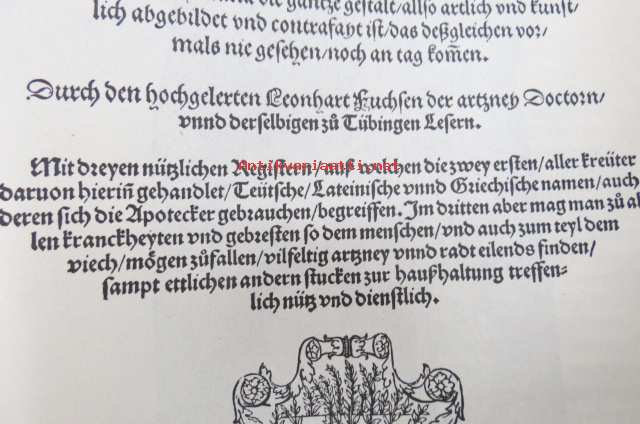 die gantze gestalt/allso artlich vnd kunst/
lich abgebildet vnd contrafayt ist/das deßgleichen vor/
mals nie gesehen/noch an tag kom̃en.
Durch den hochgelerten Leonhart Fuchsen der artzney Doctorn/
vnnd derselbigen zů Tübingen Lesern.
Mit dreyen nützlichen Registern/auß welchen die zwey ersten/aller kreüter
daruon hieriñ gehandlet/Teütsche/Lateinische vnnd Griechische namen/auch
deren sich die Apotecker gebrauchen/begreiffen. Im dritten aber mag man zů al
len kranckheyten vnd gebresten so dem menschen/vnd auch zum teyl dem
viech/mögen zůfallen/vilfeltig artzney vnnd radt eilends finden/
sampt ettlichen andern stucken zur haußhaltung treffen⸗
lich nütz vnd dienstlich.